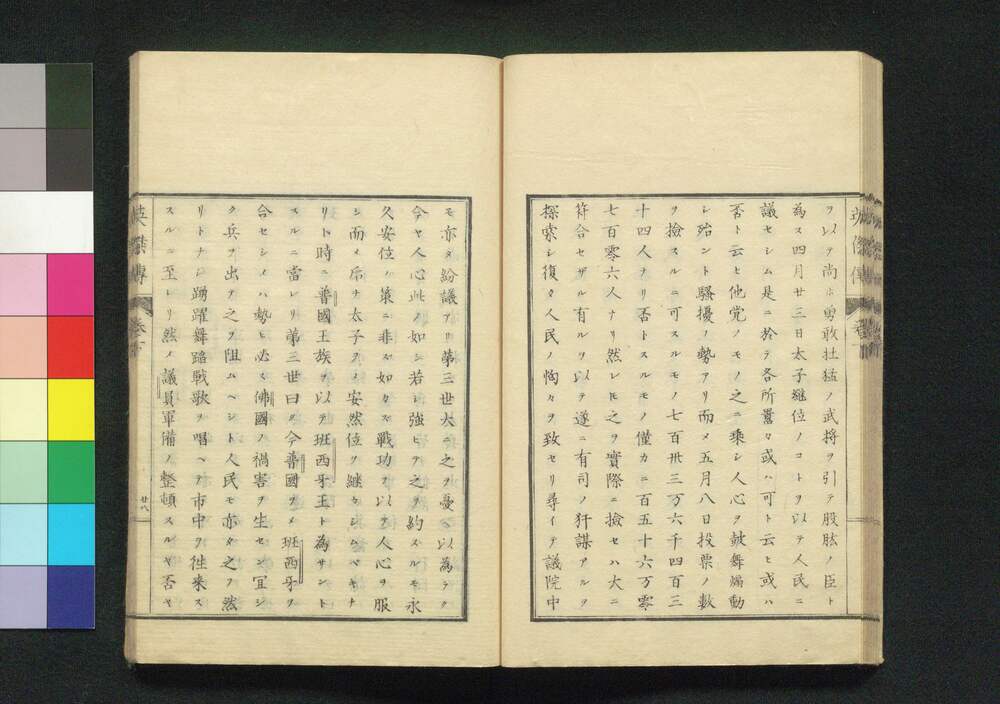 ヲ以テ尚ホ勇敢壮猛ノ武将ヲ引テ股肱ノ臣ト
為ス四月廿三日太子継位ノコトヲ以テ人民ニ
議セシム是ニ於テ各所囂々或ハ可ト云ヒ或ハ
否ト云ヒ他党ノモノ之ニ乗シ人心ヲ鼓舞煽動
シ殆ント騒擾ノ勢アリ而メ五月八日投票ノ數
ヲ檢スルニ可スルモノ七百卅三万六千四百三
十四人ナリ否トスルモノ僅カニ百五十六万零
七百零六人ナリ然レ𪜈之ヲ實際ニ檢セハ大ニ
符合セザル有ルヲ以テ遂ニ有司ノ奸謀アルヲ
探索シ復タ人民ノ恟々ヲ致セリ尋イテ議院中
英傑傳
卷十
モ亦タ紛議アリ第三世大ニ之ヲ憂ヘ以為ラク
今ヤ人心此ノ如シ若シ強ヒテ之ヲ約スルモ永
久安位ノ策ニ非ズ如カズ戰功ヲ以テ人心ヲ服
シ而メ后ナ太子ヲメ安然位ヲ継カシムベキナ
リト時ニ普國王族ヲ以テ班西牙王ト為サント
スルニ當レリ第三世曰ク今普國ヲメ班西牙ヲ
合セシメハ勢ヒ必ス佛國ノ禍害ヲ生セン冝シ
ク兵ヲ出テ之ヲ阻ムベシト人民モ亦タ之ヲ然
リトナシ踴躍舞蹈戰歌ヲ唱ヘテ市中ヲ徃来ス
スルニ至レリ然ノ議員軍備ノ整頓スルヤ否ヤ
英傑傳
卷十
廿八